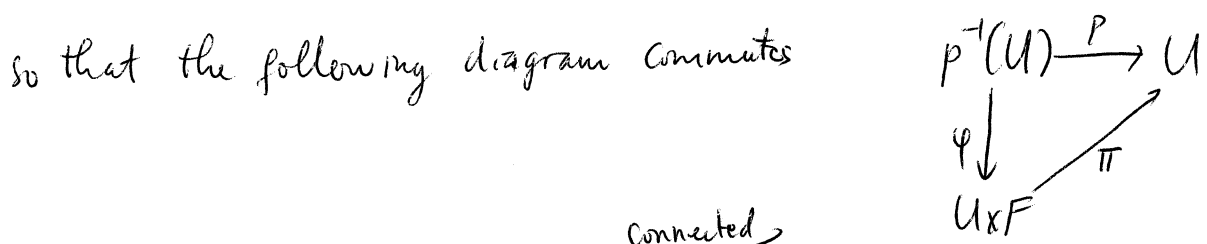 so that the following diagram commutes
p⁻¹(U) p U
φ π
U×F
connected